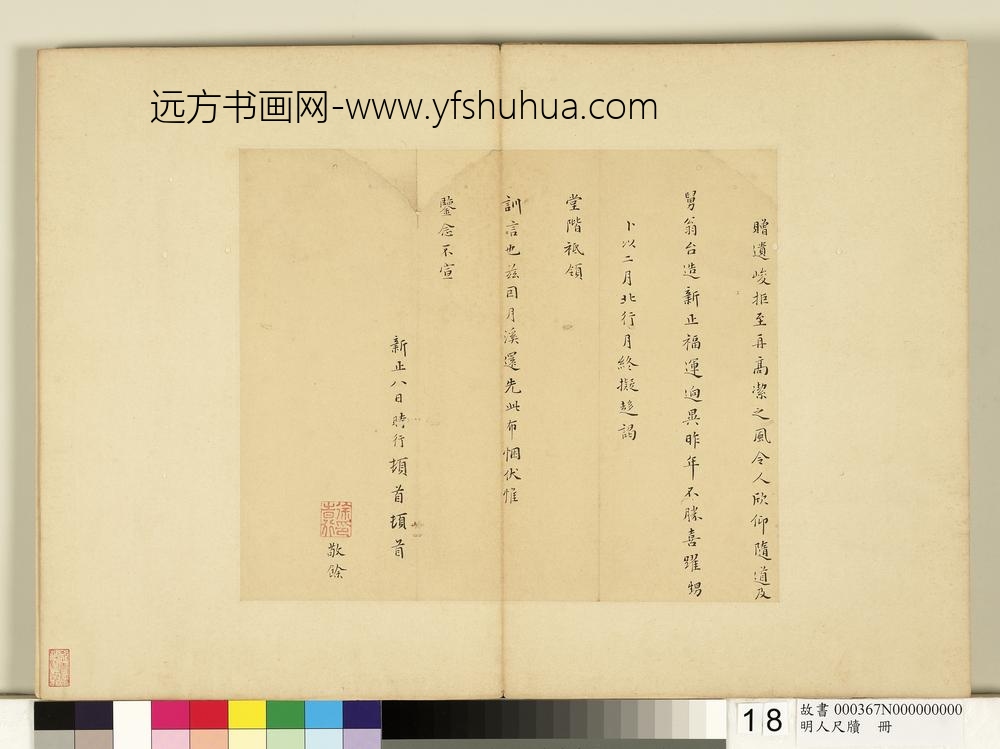 远方书画网-www.yfshuhua.com
贈遺峻拒至再高潔之風令人欣仰隨道及
舅翁台造新正福運迥異昨年不勝喜躍甥
卜以二月北行月終擬趍謁
堂階祗領
訓言也茲因月溪還先此布悃伏惟
鑒念不宣
新正八日時行頓首頓首
敬餘
18
故書 000367N000000000
明人尺牘 冊